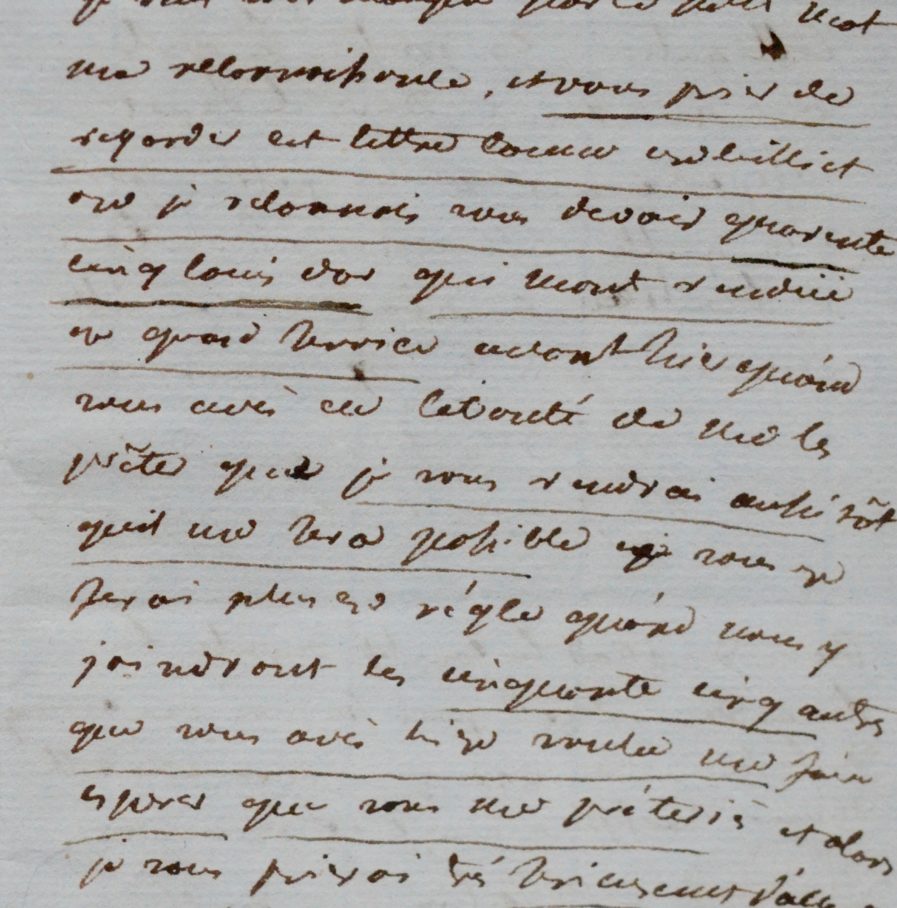 je vous
ma reconnoissance, et vous prier de
regarder cet lettre comme un billiet
ou je reconnois vous devoir quarente
cinq louis dor qui mont rendue
un grand service avant hier quánd
vous avés eu la bonté de me les
prẽter que je vous rendrai aussi tõt
quil me sera possible je vous en
ferai plus en régle quánd nous y
joindront les cinquante cinq autres
que vous avés bien voulu me faire
esperer que vous me préteriés et alors
je vous prierai trés serieusement